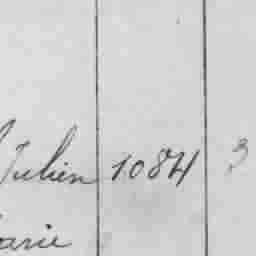 Julien 1084 3
arie